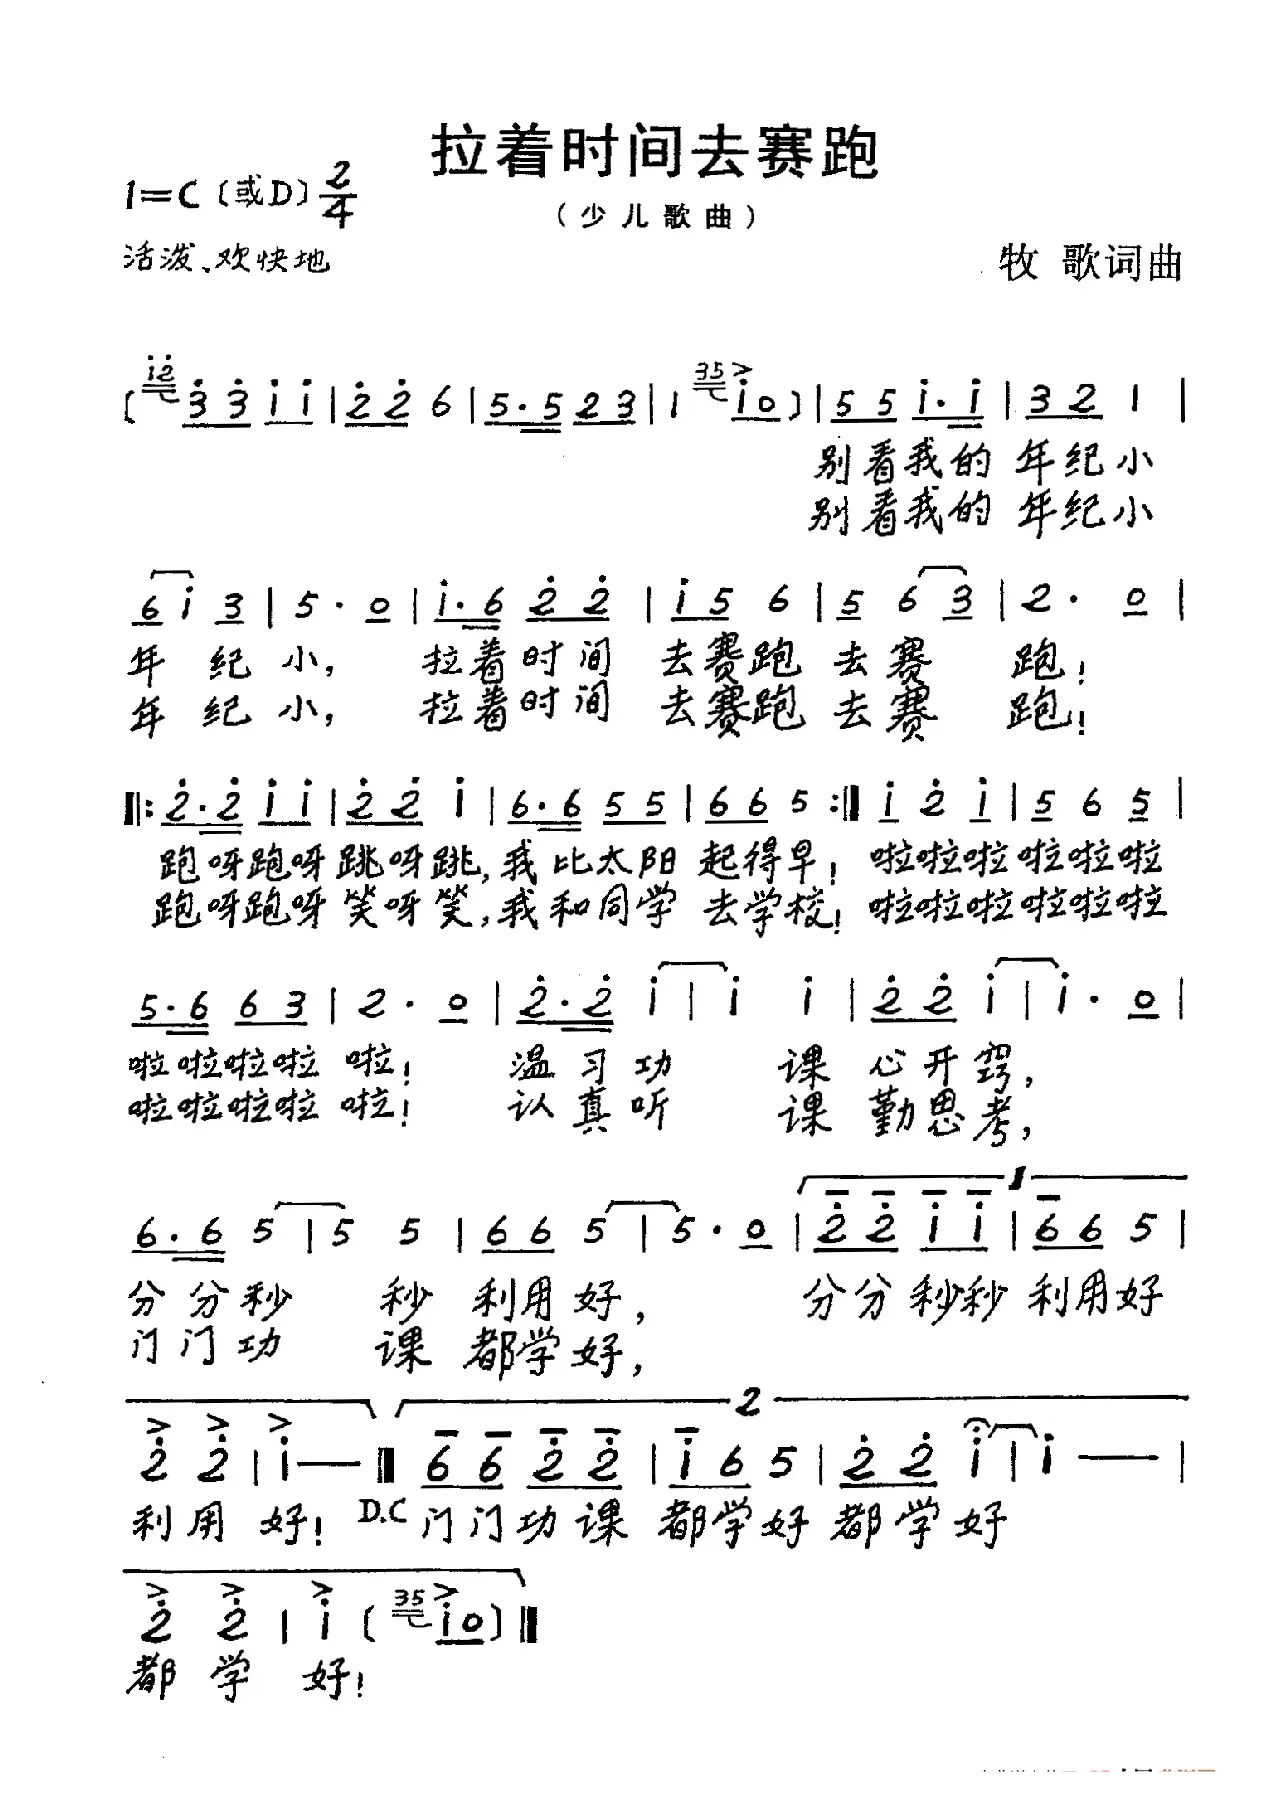 拉着时间去赛跑
1=C（或D）2/4
（少儿歌曲）
活泼、欢快地
牧 歌词曲
( i̇2̇ 3̇ 3̇ i i | 2̇ 2̇ 6 | 5·5 2 3 | 1 35 i 0 ) | 5 5 i·i | 3 2 1 |
别看我的 年纪小
别看我的 年纪小
6 i 3 | 5· 0 | i·6 2̇ 2̇ | i 5 6 | 5 6 3 | 2· 0 |
年 纪 小， 拉着时间 去赛跑 去赛 跑！
年 纪 小， 拉着时间 去赛跑 去赛 跑！
‖: 2̇·2̇ i i | 2̇ 2̇ i | 6·6 5 5 | 6 6 5 :‖ i 2̇ i | 5 6 5 |
跑呀跑呀跳呀跳，我比太阳 起得早！ 啦啦啦啦啦啦
跑呀跑呀笑呀笑，我和同学 去学校！ 啦啦啦啦啦啦
5·6 6 3 | 2· 0 | 2̇·2̇ i | i i | 2̇ 2̇ i | i· 0 |
啦啦啦啦 啦！ 温习功 课 心开窍，
啦啦啦啦 啦！ 认真听 课 勤思考，
1
6·6 5 | 5 5 | 6 6 5 | 5· 0 | 2̇ 2̇ i i | 6 6 5 |
分分秒 秒 利用好， 分分秒秒 利用好
门门功 课 都学好，
2
2̇ 2̇ | i — ‖ 6 6 2̇ 2̇ | i 6 5 | 2̇ 2̇ i | i — |
利用 好！ D.C 门门功课 都学好 都学好
2̇ 2̇ | i ( 35 i 0 ) ‖
都 学 好！